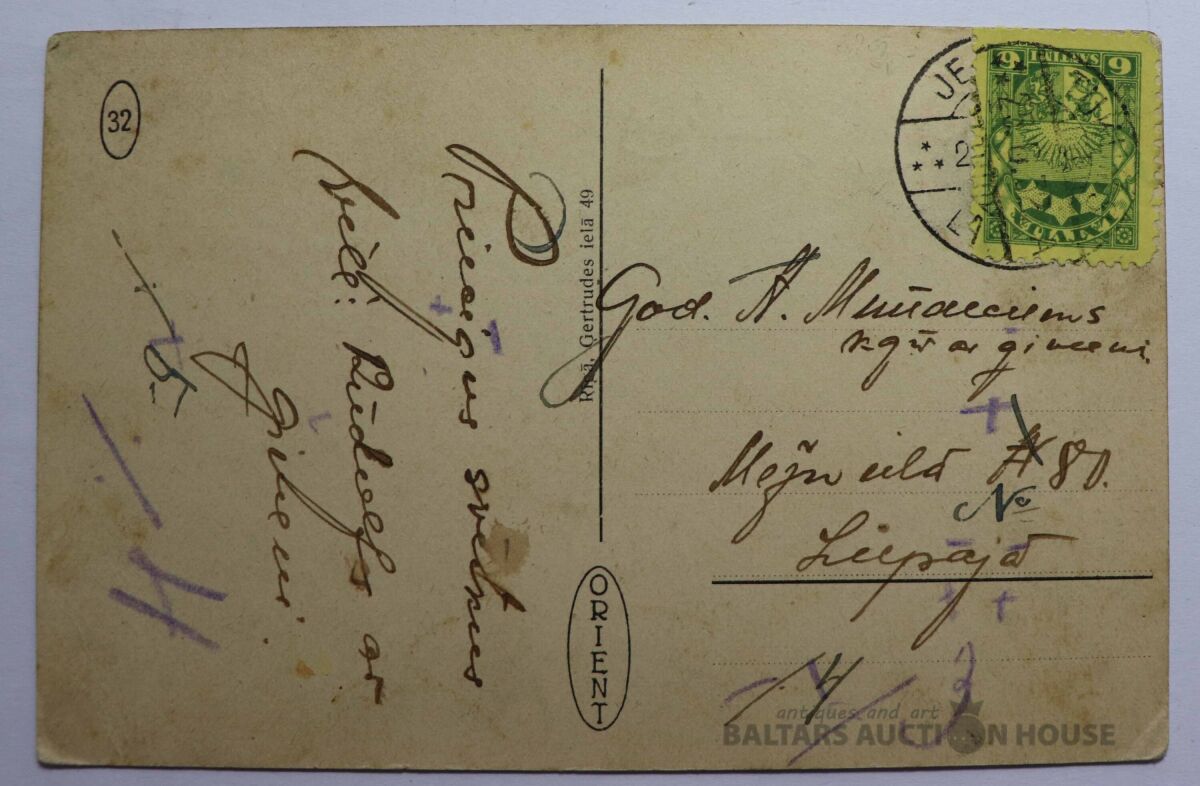 32
Priecigus svētkus
vēlē: Rūdolfs ar
ģimeni.
Rīgā, Gertrudes ielā 49
ORIENT
JE
2
6 SANTIMI 6
LATVIJA
God. A.
kgu ar ģimeni.
ielā № 80.
Liepājā
antiques and art
BALTARS AUCTION HOUSE